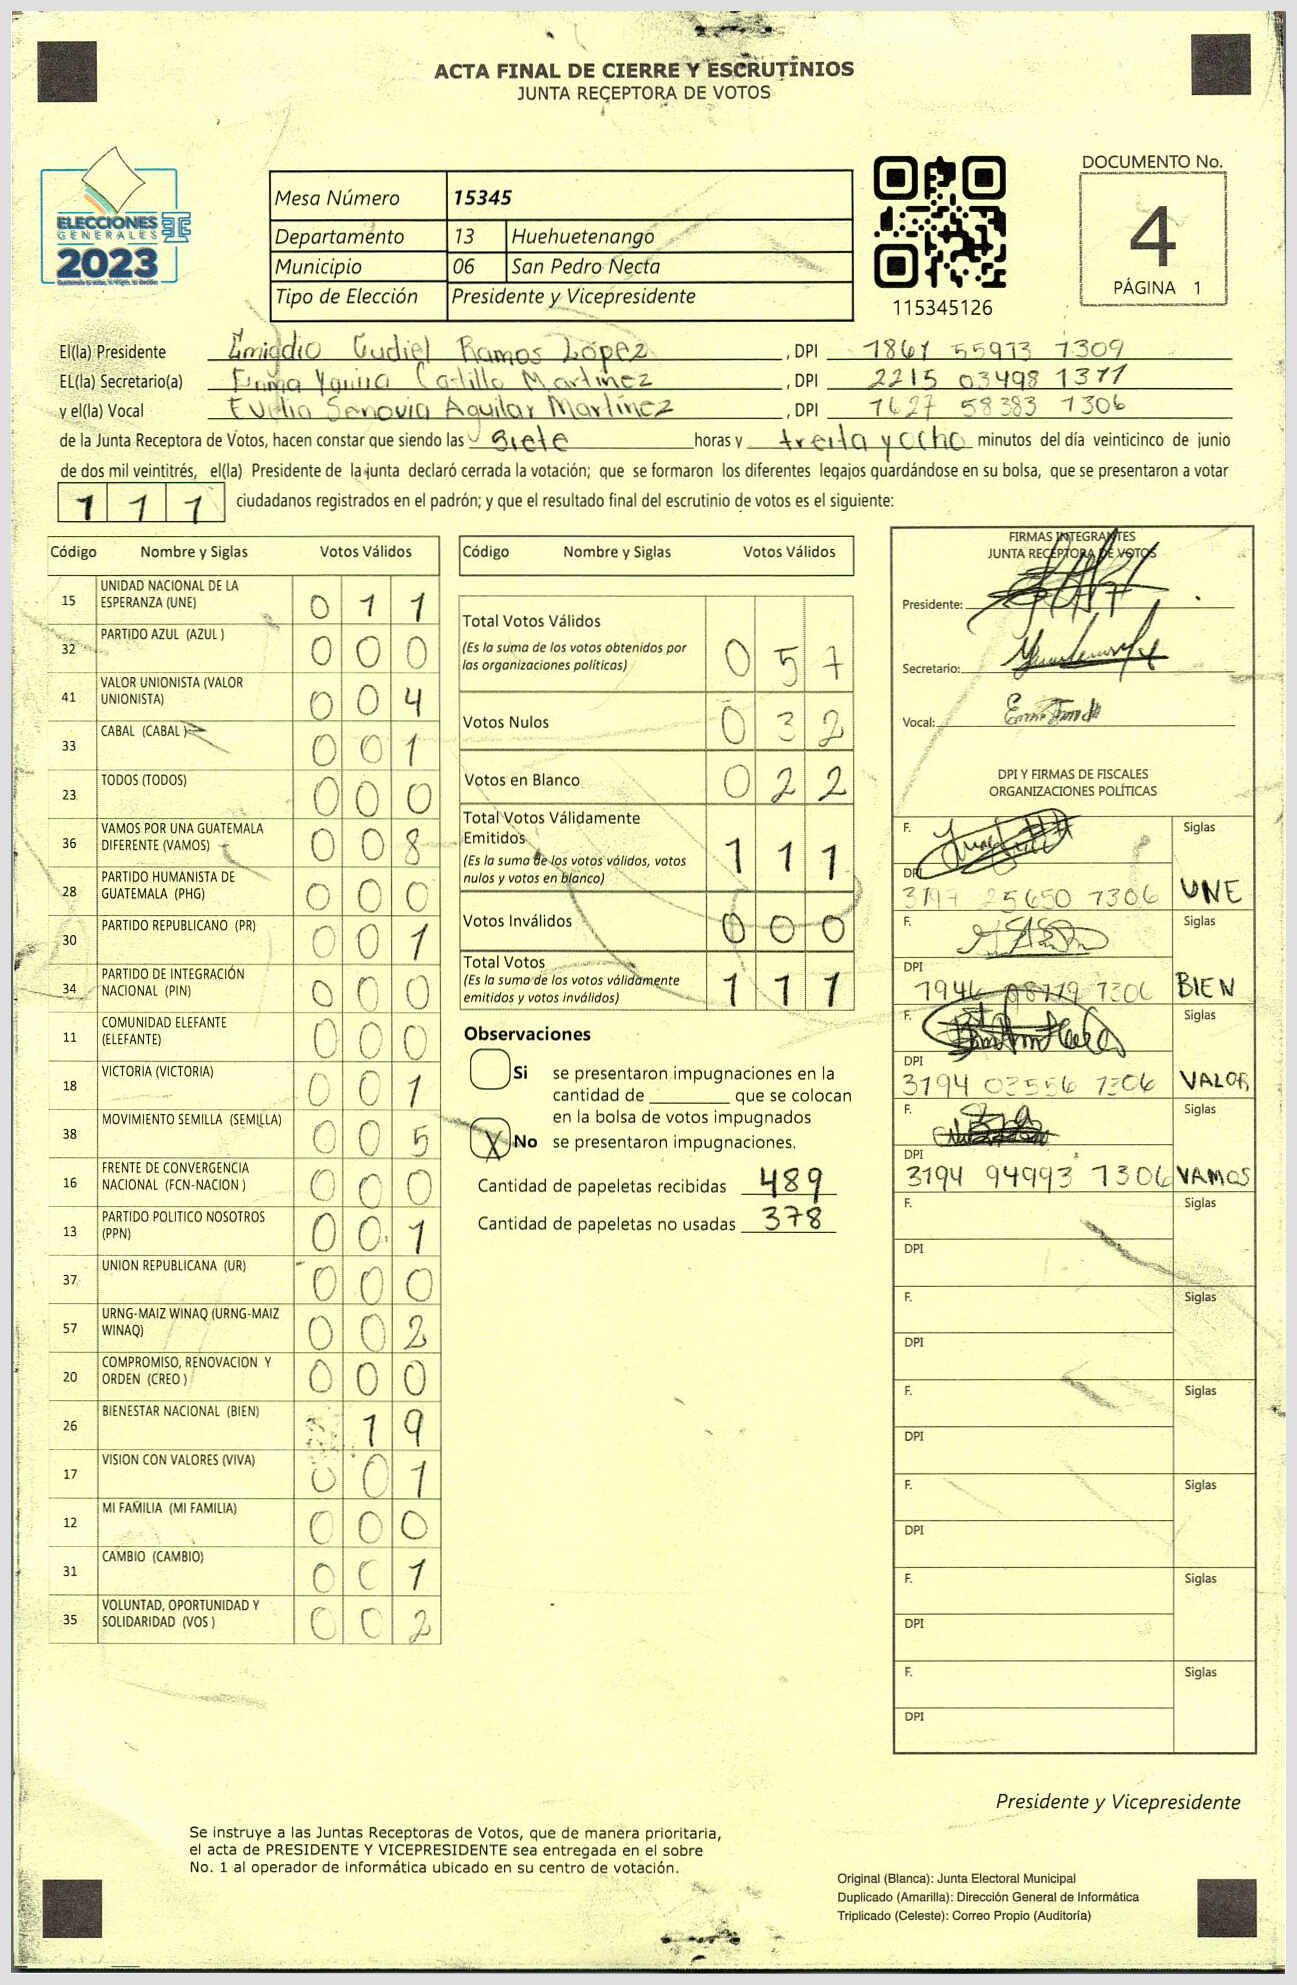 ACTA FINAL DE CIERRE Y ESCRUTINIOS
JUNTA RECEPTORA DE VOTOS
ELECCIONES
GENERALES
2023
Mesa Número 15345
Departamento 13 Huehuetenango
Municipio 06 San Pedro Necta
Tipo de Elección Presidente y Vicepresidente
115345126
DOCUMENTO No.
4
PÁGINA 1
El(la) Presidente Emigdio Gudiel Ramos López, DPI 55973 1309
EL(la) Secretario(a) Castillo Martínez, DPI 2215 03498
y el(la) Vocal Evelia Senovia Aguilar Martínez, DPI 58383 1306
de la Junta Receptora de Votos, hacen constar que siendo las siete horas y treita y ocho minutos del día veinticinco de junio
de dos mil veintitrés, el(la) Presidente de la junta declaró cerrada la votación; que se formaron los diferentes legajos quardándose en su bolsa, que se presentaron a votar
1 1 1 ciudadanos registrados en el padrón; y que el resultado final del escrutinio de votos es el siguiente:
Código Nombre y Siglas Votos Válidos
15 UNIDAD NACIONAL DE LA ESPERANZA (UNE) 0 1 1
32 PARTIDO AZUL (AZUL ) 0 0 0
41 VALOR UNIONISTA (VALOR UNIONISTA) 0 0 4
33 CABAL (CABAL ) 0 0 1
23 TODOS (TODOS) 0 0 0
36 VAMOS POR UNA GUATEMALA DIFERENTE (VAMOS) 0 0 8
28 PARTIDO HUMANISTA DE GUATEMALA (PHG) 0 0 0
30 PARTIDO REPUBLICANO (PR) 0 0 1
34 PARTIDO DE INTEGRACIÓN NACIONAL (PIN) 0 0 0
11 COMUNIDAD ELEFANTE (ELEFANTE) 0 0 0
18 VICTORIA (VICTORIA) 0 0 1
38 MOVIMIENTO SEMILLA (SEMILLA) 0 0 5
16 FRENTE DE CONVERGENCIA NACIONAL (FCN-NACION ) 0 0 0
13 PARTIDO POLITICO NOSOTROS (PPN) 0 0 1
37 UNION REPUBLICANA (UR) 0 0 0
57 URNG-MAIZ WINAQ (URNG-MAIZ WINAQ) 0 0 2
20 COMPROMISO, RENOVACION Y ORDEN (CREO ) 0 0 0
26 BIENESTAR NACIONAL (BIEN) 1 9
17 VISION CON VALORES (VIVA) 0 0 1
12 MI FAMILIA (MI FAMILIA) 0 0 0
31 CAMBIO (CAMBIO) 0 0 1
35 VOLUNTAD, OPORTUNIDAD Y SOLIDARIDAD (VOS ) 0 0 2
Código Nombre y Siglas Votos Válidos
Total Votos Válidos 0 5 7
(Es la suma de los votos obtenidos por
las organizaciones políticas)
Votos Nulos 0 3 2
Votos en Blanco 0 2 2
Total Votos Válidamente
Emitidos 1 1 1
(Es la suma de los votos válidos, votos
nulos y votos en blanco)
Votos Inválidos 0 0 0
Total Votos 1 1 1
(Es la suma de los votos válidamente
emitidos y votos inválidos)
Observaciones
Si se presentaron impugnaciones en la
cantidad de ________ que se colocan
en la bolsa de votos impugnados
X No se presentaron impugnaciones.
Cantidad de papeletas recibidas 489
Cantidad de papeletas no usadas 378
FIRMAS INTEGRANTES
JUNTA RECEPTORA DE VOTOS
Presidente:
Secretario:
Vocal:
DPI Y FIRMAS DE FISCALES
ORGANIZACIONES POLÍTICAS
F. Siglas
DPI 25650 1306 UNE
F. Siglas
DPI 1946 1306 BIEN
F. Siglas
DPI 3194 03556 1306 VALOR
F. Siglas
DPI 3194 94993 1306 VAMOS
F. Siglas
DPI
F. Siglas
DPI
F. Siglas
DPI
F. Siglas
DPI
F. Siglas
DPI
F. Siglas
DPI
Presidente y Vicepresidente
Se instruye a las Juntas Receptoras de Votos, que de manera prioritaria,
el acta de PRESIDENTE Y VICEPRESIDENTE sea entregada en el sobre
No. 1 al operador de informática ubicado en su centro de votación.
Original (Blanca): Junta Electoral Municipal
Duplicado (Amarilla): Dirección General de Informática
Triplicado (Celeste): Correo Propio (Auditoría)